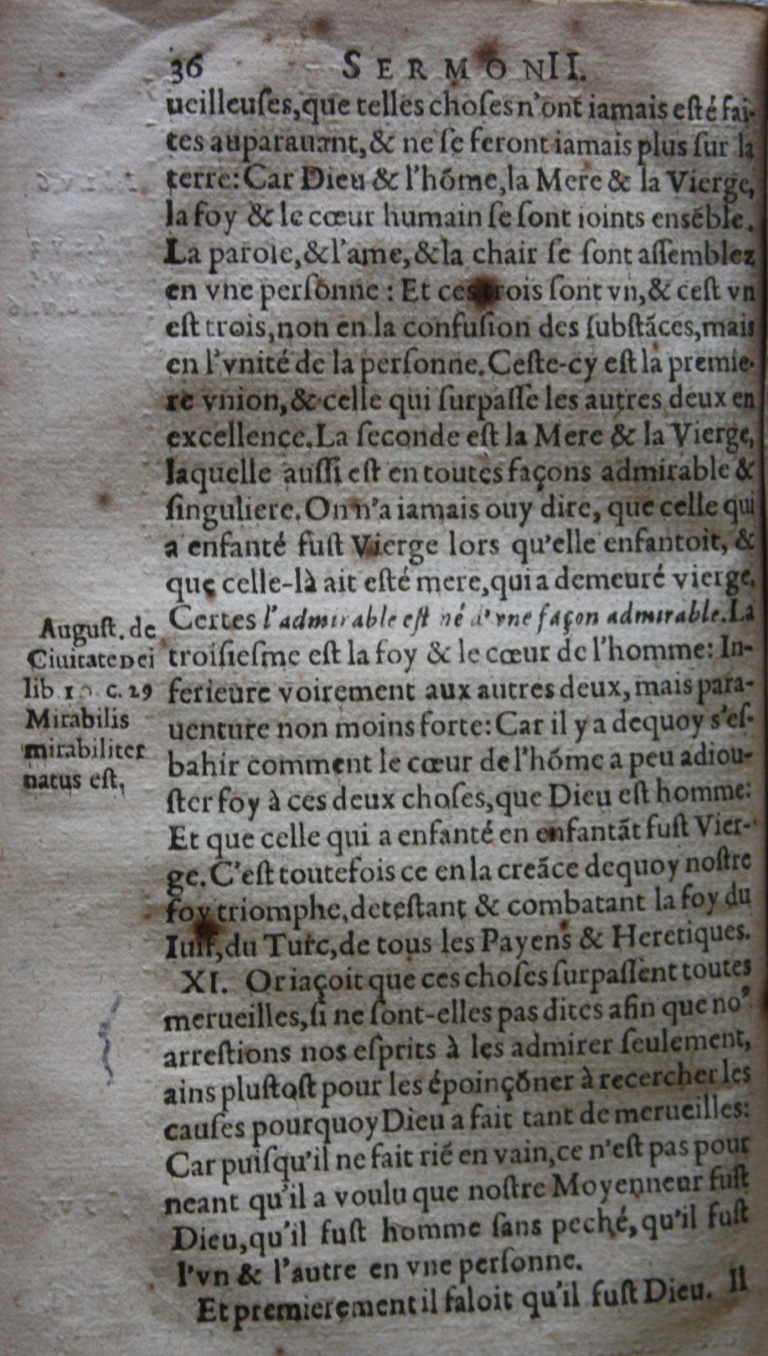 36 SERMON II.
ueilleuſes,que telles choſes n'ont iamais eſté fai-
tes auparauant,& ne ſe feront iamais plus ſur la
terre: Car Dieu & l'hõme,la Mere & la Vierge,
la foy & le cœur humain ſe ſont ioints enſẽble.
La parole,& l'ame,& la chair ſe ſont aſſemblez
en vne perſonne : Et ces trois ſont vn,& ceſt vn
eſt trois,non en la confuſion des ſubſtãces,mais
en l'vnité de la perſonne. Ceſte-cy eſt la premie-
re vnion,& celle qui ſurpaſſe les autres deux en
excellence. La ſeconde eſt la Mere & la Vierge,
laquelle auſſi eſt en toutes façons admirable &
ſinguliere. On n'a iamais ouy dire, que celle qui
a enfanté fuſt Vierge lors qu'elle enfantoit, &
que celle-là ait eſté mere,qui a demeuré vierge.
Certes l'admirable eſt né d'vne façon admirable. La
troiſieſme eſt la foy & le cœur de l'homme: In-
ferieure voirement aux autres deux, mais para-
uenture non moins forte: Car il y a dequoy s'eſ-
bahir comment le cœur de l'hõme a peu adiou-
ſter foy à ces deux choſes,que Dieu eſt homme:
Et que celle qui a enfanté en enfantãt fuſt Vier-
ge. C'eſt toutefois ce en la creãce dequoy noſtre
foy triomphe,deteſtant & combatant la foy du
Iuif,du Turc,de tous les Payens & Heretiques.
XI. Or iaçoit que ces choſes ſurpaſſent toutes
merueilles,ſi ne ſont-elles pas dites afin que no'
arreſtions nos eſprits à les admirer ſeulement,
ains pluſtoſt pour les époinçõner à recercher les
cauſes pourquoy Dieu a fait tant de merueilles:
Car puiſqu'il ne fait riẽ en vain,ce n'eſt pas pour
neant qu'il a voulu que noſtre Moyenneur fuſt
Dieu,qu'il fuſt homme ſans peché,qu'il fuſt
l'vn & l'autre en vne perſonne.
Et premierement il faloit qu'il fuſt Dieu. Il
Auguſt. de
Ciuitate Dei
lib. c. 29
Mirabilis
mirabiliter
natus eſt,